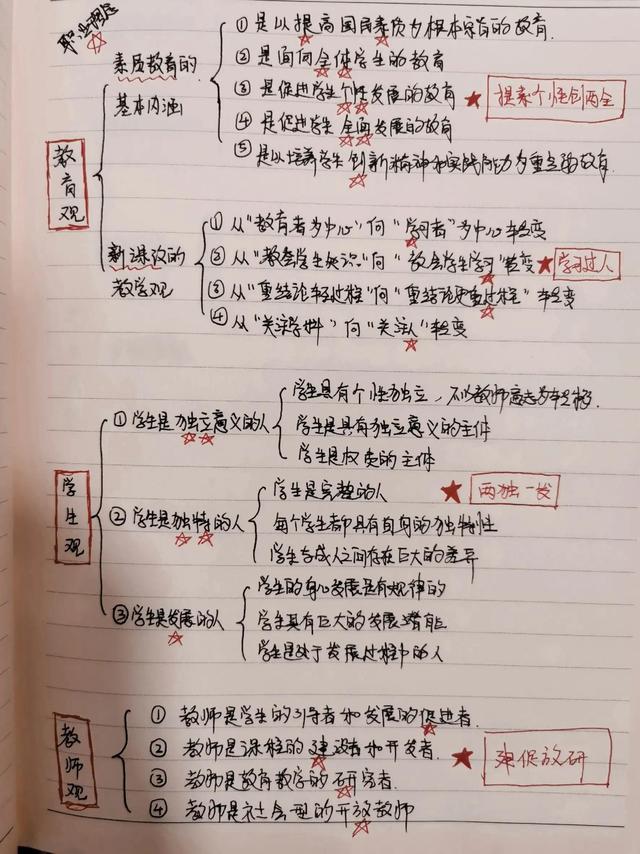 职业理念
教育观
素质教育的
基本内涵
① 是以提高国民素质为根本宗旨的教育.
② 是面向全体学生的教育
③ 是促进学生个性发展的教育
④ 是促进学生全面发展的教育
⑤ 是以培养学生创新精神和实践能力为重点的教育
提素个性创两全
新课改的
教学观
① 从“教育者为中心”向“学习者”为中心转变
② 从“教会学生知识”向“教会学生学习”转变
③ 从“重结论轻过程”向“重结论更重过程”转变
④ 从“关注学科”向“关注人”转变
学习过人
学生观
① 学生是独立意义的人
学生具有个性独立,不以教师意志为转移.
学生是具有独立意义的主体
学生是权责的主体
② 学生是独特的人
学生是完整的人
每个学生都具有自身的独特性
学生与成人之间存在巨大的差异
两独一发
③ 学生是发展的人
学生的身心发展是有规律的
学生具有巨大的发展潜能
学生是处于发展过程中的人
教师观
① 教师是学生的引导者和发展的促进者.
② 教师是课程的建设者和开发者.
③ 教师是教育教学的研究者.
④ 教师是社会型的开放教师
建促放研